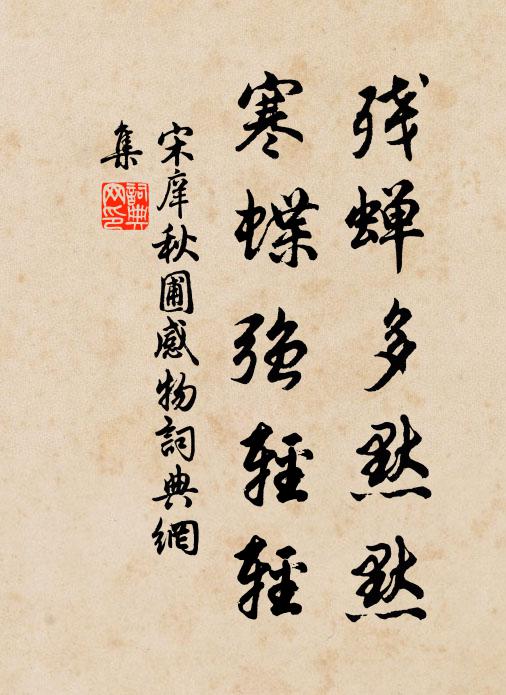 残蝉多默默
寒蝶强轻轻
宋庠秋圃感物词典網
集
詞典網印